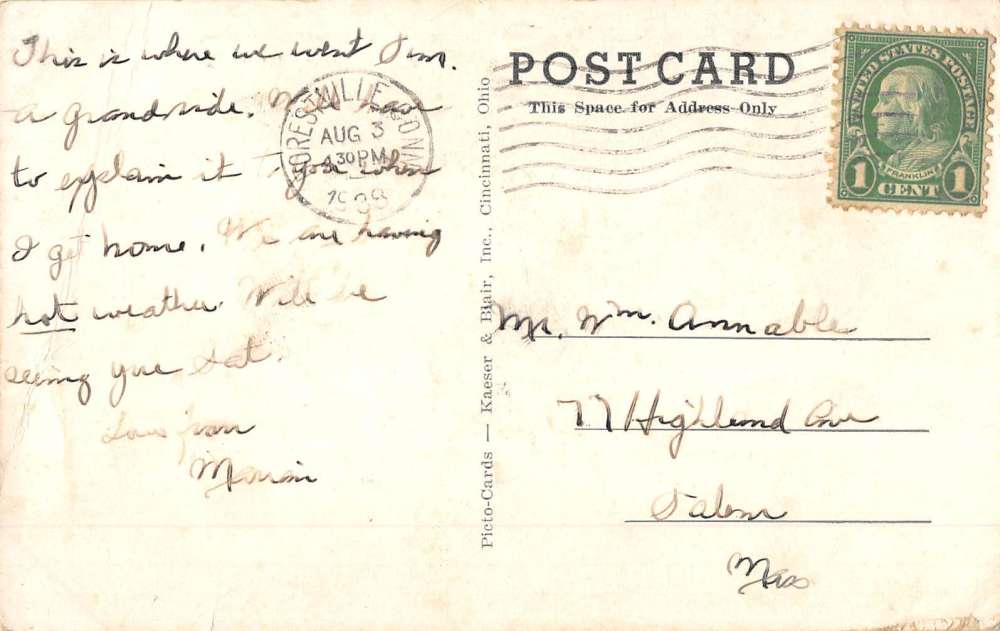 This is where we went
a grandride. Will have
to explain it to you when
I get home. We are having
hot weather. Will be
seeing you Sat.
Love from
Marion
FORESTVILLE CONN
AUG 3
4 30 PM
POST CARD
This Space for Address Only
UNITED STATES POSTAGE
FRANKLIN
1 CENT 1
Picto-Cards — Kaeser & Blair, Inc., Cincinnati, Ohio
Mr. Wm. Annable
77 Highland Ave
Salem
Mass